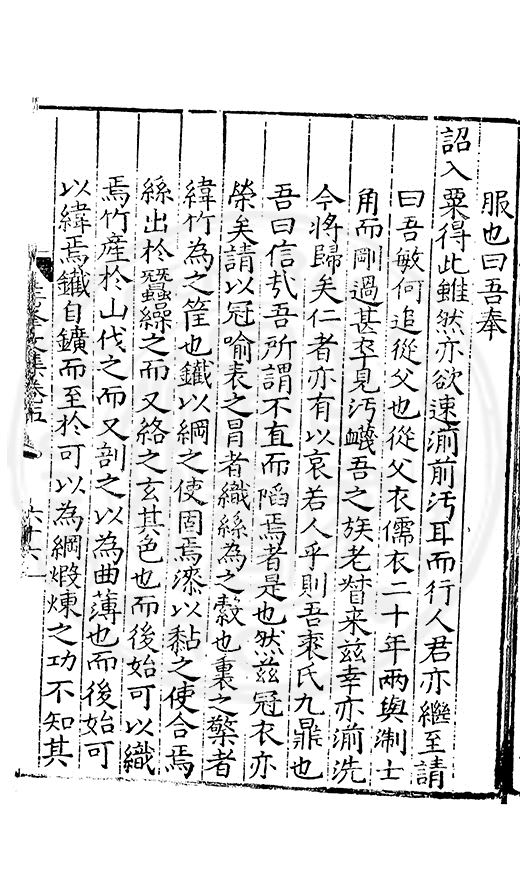 服也曰吾奉
詔入粟得此雖然亦欲速湔前汚耳而行人君亦繼至請
曰吾敏何追從父也從父衣儒衣二十年兩與淛士
角而剛過甚卒見汚衊吾之族老瞀来兹幸亦湔洗
今將歸矣仁者亦有以哀若人乎則吾袠氏九鼎也
吾曰信㢤吾所謂不直而䧟焉者是也然兹冠衣亦
榮矣請以冠喻表之冐者織絲為之縠也裏之檠者
緯竹為之篚也鐵以綱之使固焉漆以黏之使合焉
絲出於蠶繰之而又絡之玄其色也而後始可以織
焉竹産於山伐之而又剖之以為曲薄也而後始可
以緯焉鐵自鑛而至於可以為綱煅煉之功不知其